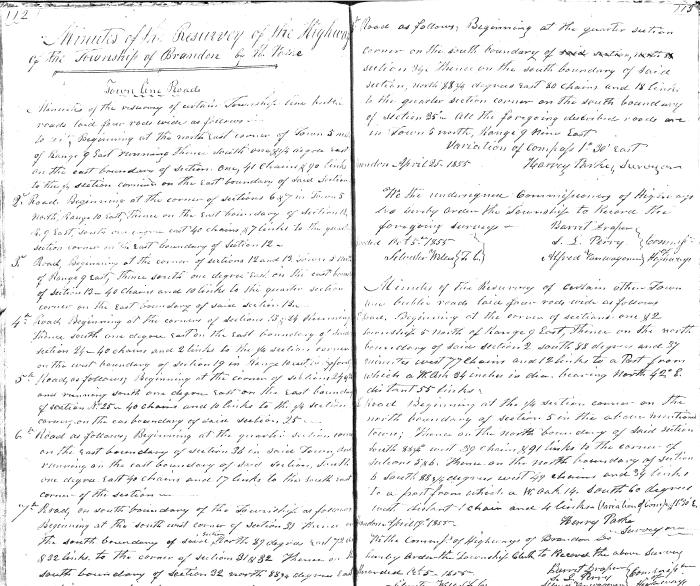 112
Minutes of the Resurvey of the Highway
of the Township of Brandon
Town line Roads
Minutes of the resurvey of certain Township line public
roads laid four rods wide as follows
Beginning at the north east corner of Town 5 north
of Range 9 East running thence south one & ¼ degree east
on the east boundary of section One, 41 Chains & 90 links
to the ¼ section corner on the East boundary of said Section
2d Road. Beginning at the corner of sections 6 & 7 in Town 5
North, Range 10 East, thence on the East boundary of Section 12,
R. 9 East, south one degree east 40 chains & 7 links to the quarter
section corner in the East boundary of Section 12
3d Road, Beginning at the corner of sections 12 and 13 Town 5 North
of Range 9 East, thence south one degree East on the east boundary
of section 13 - 40 Chains and 10 links to the quarter section
corner on the East boundary of said section 13
4th Road, Beginning at the corner of sections 13 & 24 running
thence south one degree East on the East boundary of said
section 24 - 40 chains and 2 links to the ¼ section corner
on the west boundary of section 19 in Range 10 east
5th Road, as follows, Beginning at the corner of sections 24 & 25
and running south one degree East on the East boundary
of section No. 25 - 40 chains and 10 links to the ¼ section
corner, on the east boundary of said section 25
6th Road as follows, Beginning at the quarter section corner
on the East boundary of section 36 in said Town, and
running on the east boundary of said section, South
one degree East 40 chains and 17 links to the south east
corner of the section
7th Road, on south boundary of the Township as follows
Beginning at the south west corner of section 31 thence on
the south boundary of said section North 89 degrees East 72
& 32 links to the corner of section 31 & 32 Thence on the
south boundary of section 32 north 88¾ degrees East
113
Road as follows; Beginning at the quarter section
corner on the south boundary of said section,
section 34. Thence on the south boundary of said
section, north 88¼ degrees East 80 chains and 18 links
to the quarter section corner on the south boundary
of section 35 - All the foregoing described roads are
in Town 5 north, Range 9 Nine East
Variation of Compass 1° 30' east
Brandon April 25. 1855 Harvey Parke, Surveyor
We the undersigned Commissioners of Highways
do hereby order the Township to Record the
foregoing Surveys - Barret Draper
Oct 5th 1855 S. L. Perry
Alfred Highways
Minutes of the Resurvey of Certain other Town
line public roads laid four rods wide as follows
Road, Beginning at the corner of sections one & 2
township 5 North of Range 9 East, Thence on the north
boundary of said section 2 south 88 degrees and 37
minutes west 77 Chains and 12 links to a Post from
which a W. Oak 34 inches in dia. bearing North 42° E.
distant 55 links
Road Beginning at the ¼ section corner on the
north boundary of section 5 in the above mentioned
town; Thence on the north boundary of said section
south 88¾° west 39 chains & 91 links to the corner of
sections 5 & 6. Thence on the north boundary of section
6 south 88¾ degrees west 49 chains and 34 links
to a post from which a W. Oak 14. South 60 degrees
west distant 1 chain and 4 links (Variation of Comps 1° 30' E.
Brandon April 19th 1855. Harvey Parke
Surveyor
We the commrs of Highways of Brandon do
hereby Order the Township Clerk to Record the above Survey
Recorded Oct 5. 1855 Barret Draper
S. L. Perry